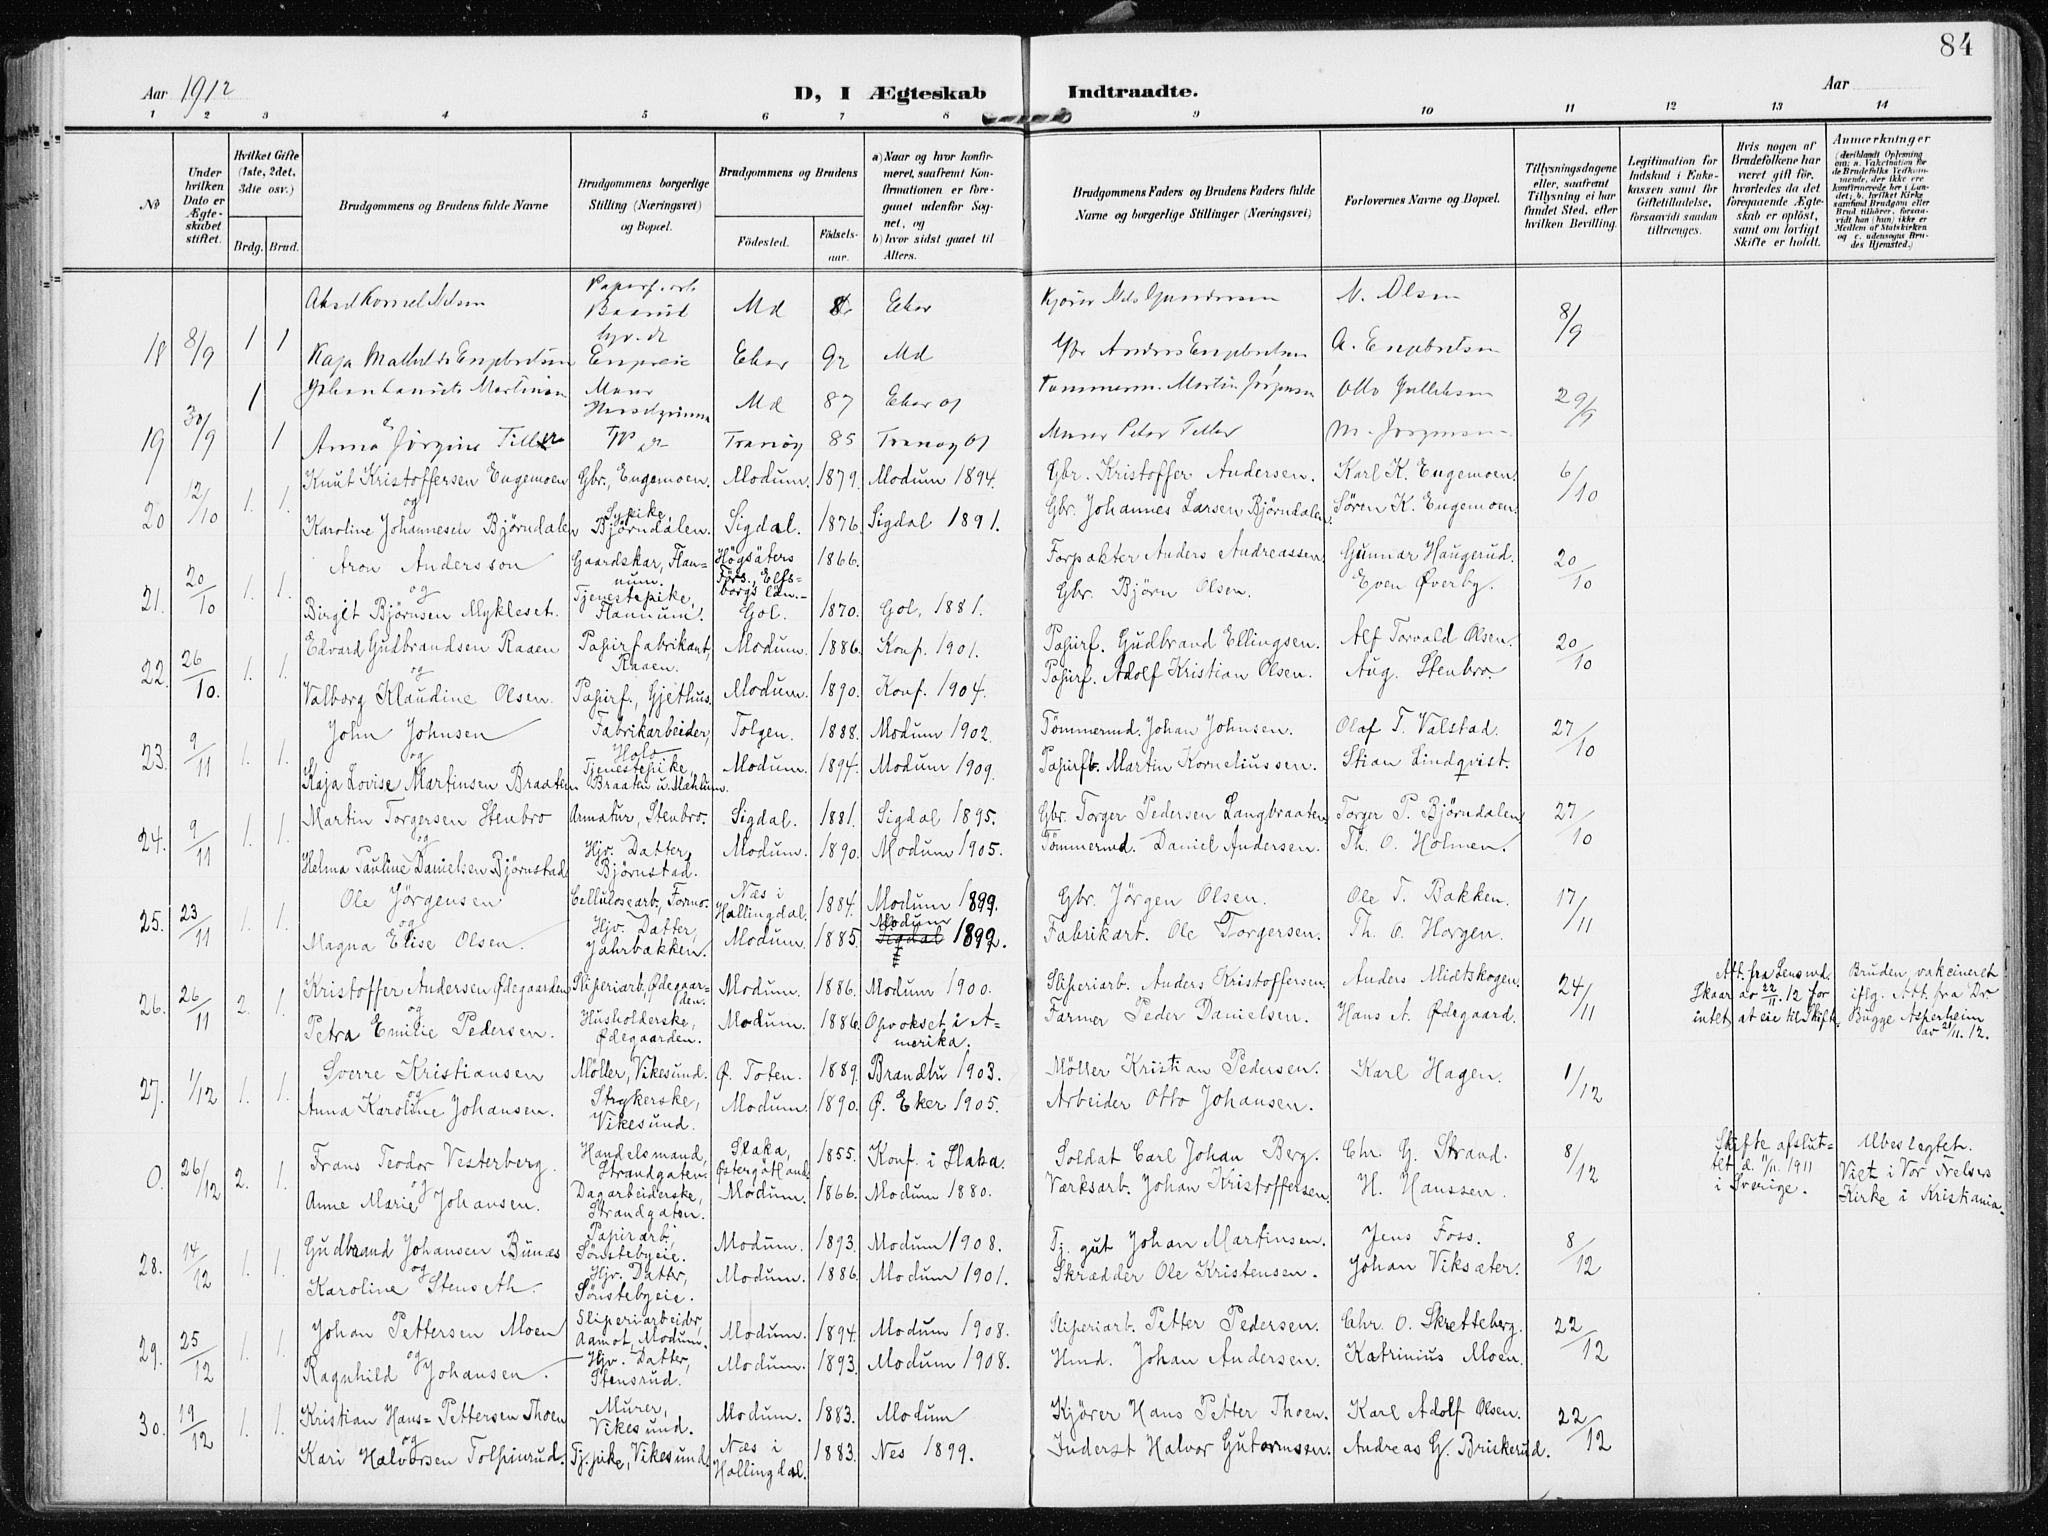 84
Aar 1912
D, I Ægteskab Indtraadte.
Aar
1 2 3 4 5 6 7 8 9 10 11 12 13 14
No
Under hvilken Dato er Ægteskabet stiftet.
Hvilket Gifte (1ste, 2det, 3die osv.)
Brdg. Brud.
Brudgommens og Brudens fulde Navne
Brudgommens borgerlige Stilling (Næringsvei) og Bopæl.
Brudgommens og Brudens
Födested. Födselsaar.
a) Naar og hvor konfirmeret, saafremt Konfirmationen er foregaaet udenfor Sognet, og
b) hvor sidst gaaet til Alters.
Brudgommens Faders og Brudens Faders fulde Navne og borgerlige Stillinger (Næringsvei)
Forlovernes Navne og Bopæl.
Tillysningsdagene eller, saafremt Tillysning ei har fundet Sted, efter hvilken Bevilling.
Legitimation for Indskud i Enkekassen samt for Giftetilladelse, forsaavidt saadan tiltrænges.
Hvis nogen af Brudefolkene har været gift för, hvorledes da det foregaaende Ægteskab er oplöst, samt om lovligt Skifte er holdt.
Anmærkninger
(deriblandt Oplysning om: a. Vakcination for de Brudefolks Vedkommende, der ikke ere konfirmerede her i Landet; b. hvilket Kirkesamfund Brudgom eller Brud tilhörer, forsaavidt han (hun) ikke er Medlem af Statskirken og c. udensogns Brudes Hjemsted.)
18 8/9 1 1 Md Eker Kjører Nils Gundersen N. Olsen 8/9
Kaja Mathilde Engebretsen Engereie Eker 92 Md Gbr Andres Engebretsen A. Engebretsen
19 30/9 1 1 Martinsen Murer Md 87 Eker 01 Tømmerm. Martin Jørgensen Otto Gulliksen 29/9
Anna Jørgine Tiller Tranøy 85 Tranøy 01 Murer Peter Tiller M. Jørgensen
20 12/10 1. 1. Knut Kristoffersen Engemoen Gbr., Engemoen. Modum. 1879. Modum 1894. Gbr. Kristoffer Andersen. Karl K. Engemoen. 6/10
og
Karoline Johannesen Bjørndalen Sypike Bjørndalen. Sigdal. 1876. Sigdal 1891. Gbr. Johannes Larsen Bjørndalen. Søren K. Engemoen.
21. 20/10 1. 1. Aron Andersson Gaardskar, Flannum. Högsäters Förs., Elfsborgs län. 1866. Forpakter Anders Andreassen Gunnar Haugerud. 20/10
og
Birgit Bjørnsen Mykleset. Tjenestepike, Flannum. Gol. 1870. Gol, 1881. Gbr. Bjørn Olsen. Even Øverby.
22. 26/10. 1. 1. Edvard Gudbrandsen Raaen Papirfabrikant, Raaen. Modum. 1886. Konf. 1901. Papirf. Gudbrand Ellingsen. Alf Torvald Olsen. 20/10
og
Valborg Klaudine Olsen. Papirf., Gjethus. Modum. 1890. Konf. 1904. Papirf. Adolf Kristian Olsen. Aug. Stenbro.
23. 9/11 1. 1. John Johnsen Fabrikarbeider, Holo Tolgen. 1888. Modum 1902. Tømmermd. Johan Johnsen. Olaf T. Valstad. 27/10
og
Kaja Lovise Martinsen Braaten Tjenestepike, Braaten u. Mæhlum. Modum. 1894. Modum 1909. Papirfb. Martin Korneliussen. Stian Lindqvist.
24. 9/11 1. 1. Martin Torgersen Stenbro Armatur, Stenbro. Sigdal. 1881. Sigdal 1895. Gbr. Torger Pedersen Langbraaten Torger P. Bjørndalen 27/10
og
Helma Pauline Danielsen Bjørnstad Hjv. Datter, Bjørnstad. Modum. 1890. Modum 1905. Tømmermd. Daniel Andersen. Th. O. Holmen.
25. 23/11 1. 1. Ole Jørgensen Cellulosearb, Formo. Næs i Hallingdal. 1884. Modum 1899. Gbr. Jørgen Olsen. Ole T. Bakken. 17/11
og
Magna Elise Olsen. Hjv. Datter, Jahrbakken. Modum. 1885. Modum Sigdal 1899. Fabrikart. Ole Torgersen. Th. O. Horgen.
26. 26/11 2. 1. Kristoffer Andersen Ødegaarden Sliperiarb, Ødegaarden. Modum. 1886. Modum 1900. Sliperiarb. Anders Kristoffersen. Anders Midtskogen. 24/11 Att. fra Lensmd. Skaar av 22/11. 12 for intet at eie til Skifte. Bruden vakcineret iflg. Att. fra Dr Bugge Asperheim av 21/11. 12.
og
Petra Emilie Pedersen. Husholderske, Ødegaarden. Modum. 1886. Opvokset i Amerika. Farmer Peder Danielsen. Hans A. Ødegaard.
27. 1/12 1. 1. Sverre Kristiansen Møller, Vikesund. Ø. Toten. 1889. Brandbu 1903. Møller Kristian Pedersen. Karl Hagen. 1/12
og
Anna Karoline Johansen. Strykerske, Vikesund. Modum. 1890. Ø. Eker 1905. Arbeider Otto Johansen.
0. 26/12 2. 1. Frans Teodor Vesterberg. Handelsmand, Strandgaten. Slaka, Østergötland 1855. Konf. i Slaka. Soldat Carl Johan Berg. Chr. G. Strand. 8/12 Skifte afsluttet d. 11/11. 1911 i Sverige. Ubeslegtet. Viet i Vor Frelsers Kirke i Kristiania.
og
Anne Marie Johansen. Dagarbeiderske, Strandgaten. Modum. 1866. Modum 1880. Værksarb. Johan Kristoffersen. H. Hanssen.
28. 14/12 1. 1. Gudbrand Johansen Bunæs Papirarb, Sønstebyeie. Modum. 1893. Modum 1908. Tj. gut Johan Martinsen. Jens Foss. 8/12
og
Karoline Stenseth. Hjv. Datter, Sønstebyeie. Modum. 1886. Modum 1901. Skrædder Ole Kristensen. Johan Viksæter.
29. 25/12 1. 1. Johan Pettersen Moen Sliperiarbeider, Aamot, Modum. Modum. 1894. Modum 1908. Sliperiarb. Petter Pedersen. Chr. O. Skretteberg. 22/12
og
Ragnhild Johansen. Hjv. Datter, Stensrud. Modum. 1893. Modum 1908. Hmd. Johan Andersen. Katrinius Moen.
30. 19/12 1. 1. Kristian Hans=Pettersen Thoen Murer, Vikesund. Modum. 1883. Modum Kjører Hans Petter Thoen. Karl Adolf Olsen. 22/12
og
Kari Halvorsen Tolpinrud. Tj. pike, Vikesund. Næs i Hallingdal. 1883. Nes 1899. Inderst Halvor Gutormsen. Andreas G. Briskerud.